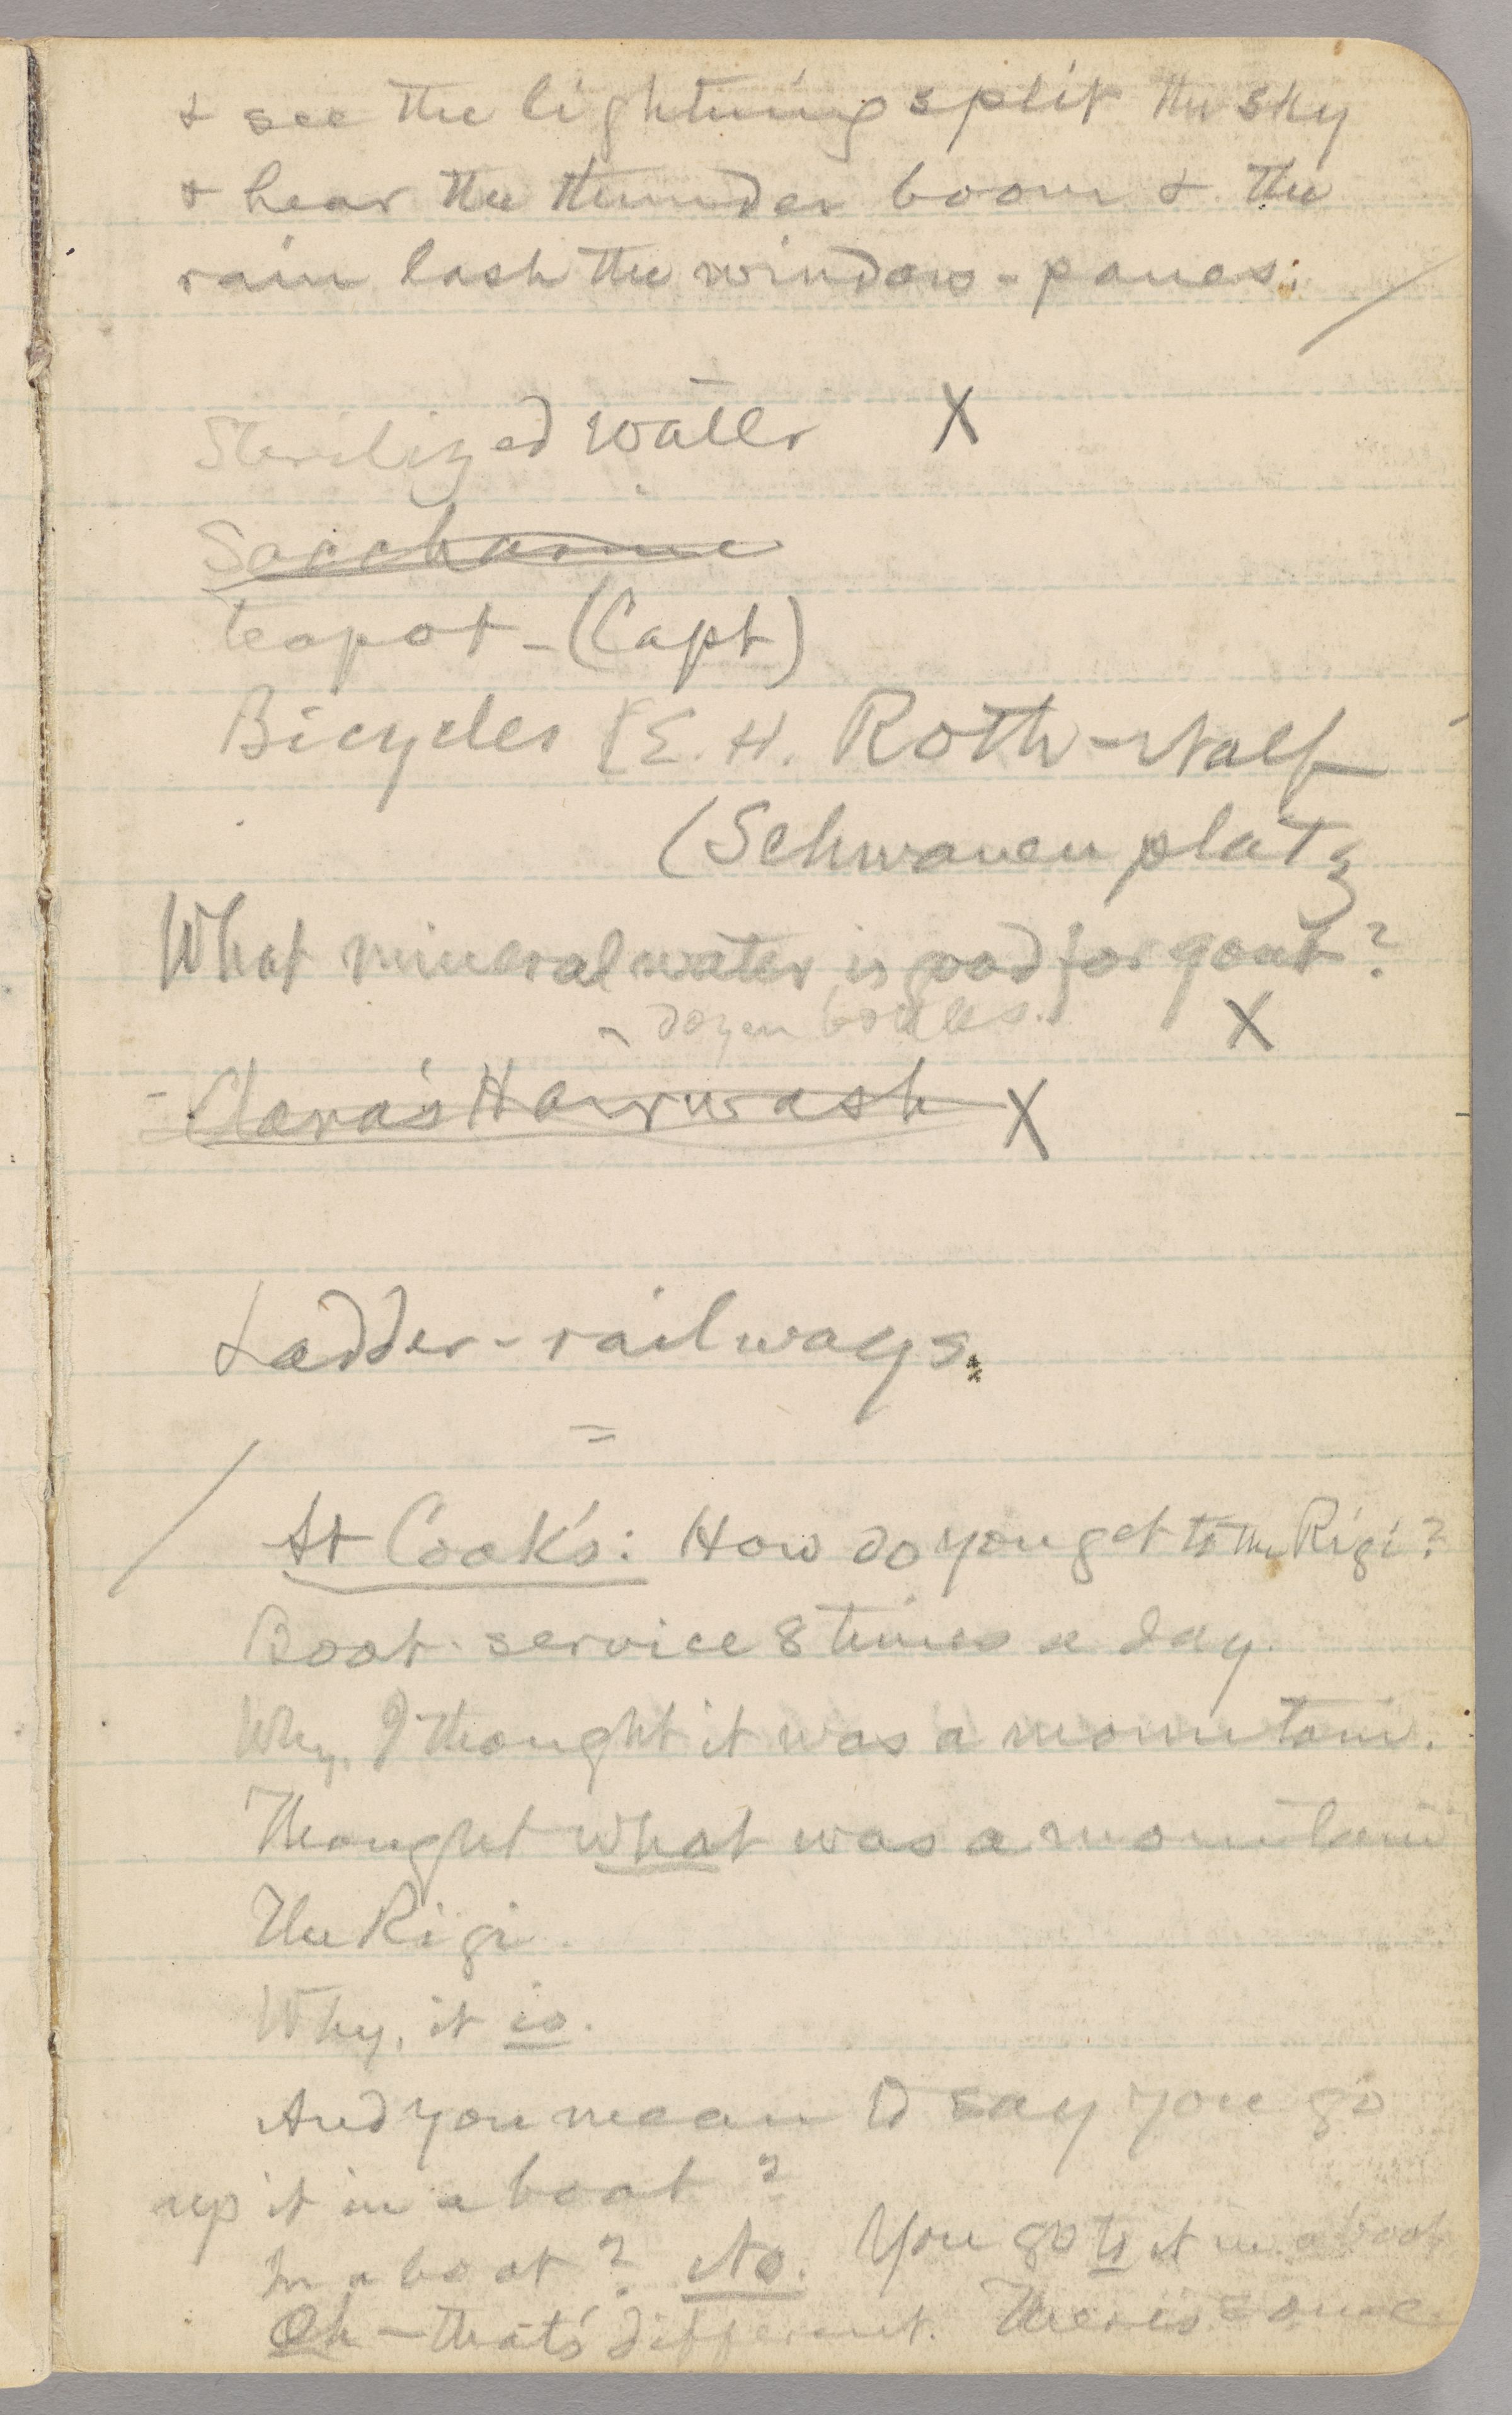 & see the lightning split the sky
& hear the thunder boom & the
rain lash the window-panes.
Sterilized water X
Saccharine
teapot - (Capt)
Bicycles (E. H. Roth-Walf
(Schwanenplatz
What mineral water is good for gout?
dozen bottles. X
- Clara's Hairwash X
Ladder-railways.
=
At Cook's: How do you get to the Rigi?
Boat-service 8 times a day.
Why, I thought it was a mountain.
Thought what was a mountain
The Rigi.
Why, it is.
And you mean to say you go
up it in a boat?
In a boat? No. You go to it in a boat
Oh — that's different. There is some